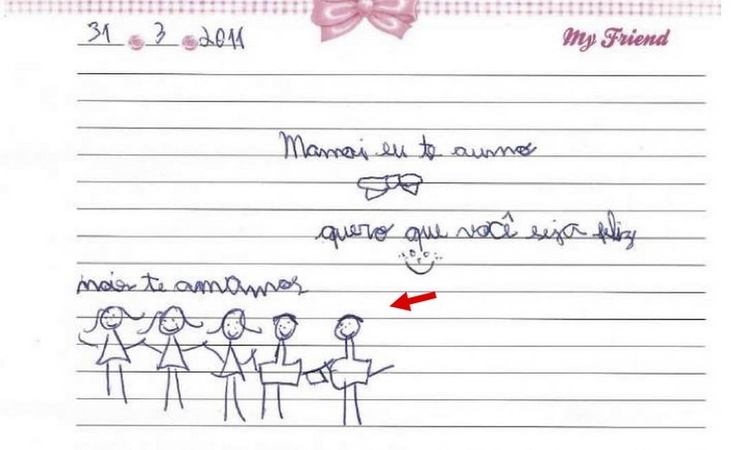 31 3 2011
My Friend
Mamai eu te aumo
quero que você seja feliz
nóis te amamos